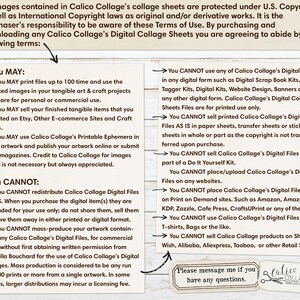 mages contained in Calico Collage's collage sheets are protected under U.S. Copy
ell as International Copyright laws as original and/or derivative works. It is the
haser's responsibility to be aware of these Terms of Use. By purchasing and
nloading any Calico Collage's Digital Collage Sheets you are agreeing to abide by
wing terms:
u MAY:
MAY print files up to 100 time and use the
ed images in your tangible art & craft projects
are for personal or commercial use.
MAY sell your finished tangible items that you
ted on Etsy, Other E-commerce Sites and Craft
MAY use Calico Collage's Printable Ephemera in
artwork and publish your artwork online or submit
magazines. Credit to Calico Collage for images
is not necessary but always appreciated.
CANNOT:
CANNOT redistribute Calico Collage Digital Files
S. When you purchase the digital item(s) they are
nded for your use only; do not share them, sell them
ve them away in either printed or digital format.
CANNOT mass-produce your artwork contain-
ny Calico Collage's Digital Files, for commercial
without first obtaining written permission from
ila Bouchard for the use of Calico Collage's Digital
es. Mass production is considered to be any run
0 prints or more from a single artwork. In some
s, larger distributions may incur a licensing fee.
You CANNOT use any of Calico Collage's Digital
in any digital form such as Digital Scrap Book Kits,
Tagger Kits, Digital Kits, Website Design, Banners or
any other digital form. Calico Collage's Digital Col
Sheets Files are for printed use only.
You CANNOT sell printed Calico Collage's Digital
Files AS IS in paper sheets, transfer sheets or stick
sheets in whole or part as the copyright is not tran
ferred upon purchase.
You CANNOT sell Calico Collage's Digital Files
part of a Do It Yourself Kit.
You CANNOT place/upload Calico Collage's Dig
Files on any websites.
You CANNOT place Calico Collage's Digital Files
on Print on Demand sites. Such as Amazon, Amaz
KDP, Zazzle, Cafe Press, CraftCult or any of the
You CANNOT use Calico Collage's Digital Files
T-shirts, Bags or the like.
You CANNOT sell Calico Collage Products on Sh
Wish, Alibaba, Aliexpress, Taobao, or other Retail S
Please message me if you
have any questions.
Calico